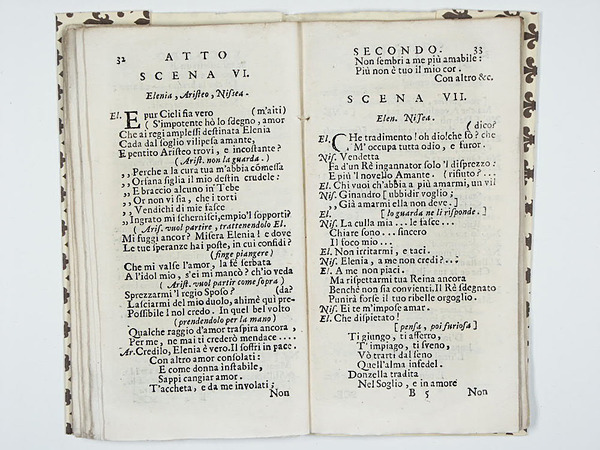 32 ATTO
SCENA VI.
Elenia, Aristeo, Nissea.
El. E pur Cieli fia vero (m'aiti)
( S'impotente hò lo sdegno, amor
Che ai regi amplessi destinata Elenia
Cada dal soglio vilipesa amante,
E pentito Aristeo trovi, e incostante?
(Arist. non la guarda.)
,, Perche a la cura tua m'abbia cõmessa
,, Orsana figlia il mio destin crudele:
,, E braccio alcuno in Tebe
,, Or non vi sia, che i torti
,, Vendichi di mie fasce
,, Ingrato mi schernisci, empio'l sopporti?
( Aris. vuol partire, trattenendolo El.
Mi fuggi ancor? Misera Elenia! e dove
Le tue speranze hai poste, in cui confidi?
(finge piangere)
Che mi valse l'amor, la fé serbata
A l'idol mio, s'ei mi mancò? ch'io veda
(Arist. vuol partir come sopra)
Sprezzarmi'l regio Sposo? (da?
Lasciarmi del mio duolo, ahimè quì pre-
Possibile! nol credo. In quel bel volto
(prendendolo per la mano)
Qualche raggio d'amor traspira ancora,
Per me, ne mai ti crederò mendace....
Ar. Credilo, Elenia è vero. Il soffri in pace.
Con altro amor consolati:
E come donna instabile,
Sappi cangiar amor.
T'accheta, e da me involati;
Non
SECONDO. 33
Non sembri a me più amabile:
Più non è tuo il mio cor.
Con altro &c.
SCENA VII.
Elen. Nissea.
(dico?
El. CHe tradimento! oh dio! che fò? che
M'occupa tutta odio, e furor.
Nis. Vendetta
Fa d'un Rè ingannator solo'l disprezzo:
E più'l novello Amante. (rifiuto?...
El. Chi vuoi ch'abbia a più amarmi, un vil
Nis. Ginandro [ubbidir voglio;
,, Già amarmi ella non deve.]
El. [lo guarda ne li risponde.]
Nis. La culla mia... le fasce...
Chiare sono... sincero
Il foco mio...
El. Non irritarmi, e taci.
Nis. Elenia, a me non credi?...
El. A me non piaci.
Ma rispettarmi tua Reina ancora
Benché non sia convienti. Il Rè sdegnato
Punirà forse il tuo ribelle orgoglio.
Nis. Ei te m'impose amar.
El. Che dispietato!
[pensa, poi furiosa]
Ti giungo, ti afferro,
T'impiago, ti sveno,
Vò trarti dal seno
Quell'alma infedel.
Donzella tradita
Nel Soglio, e in amore
B 5 Non